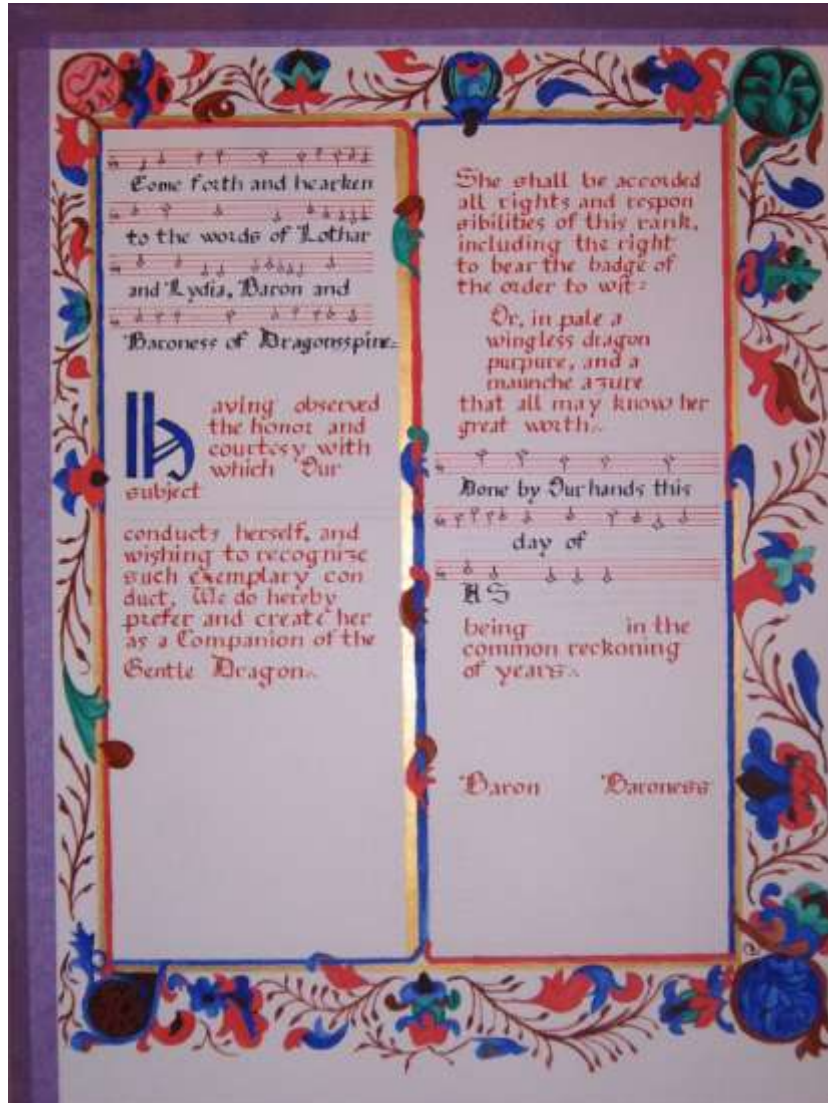 Come forth and hearken
to the words of Lothar
and Lydia, Baron and
Baroness of Dragonsspine
Having observed
the honor and
courtesy with
which Our
subject
conducts herself, and
wishing to recognize
such exemplary con
duct, We do hereby
prefer and create her
as a Companion of the
Gentle Dragon.
She shall be accorded
all rights and respon
sibilities of this rank,
including the right
to bear the badge of
the order to wit:
Or, in pale a
wingless dragon
purpure, and a
maunche azure
that all may know her
great worth.
Done by Our hands this
day of
A S
being in the
common reckoning
of years.
Baron Baroness